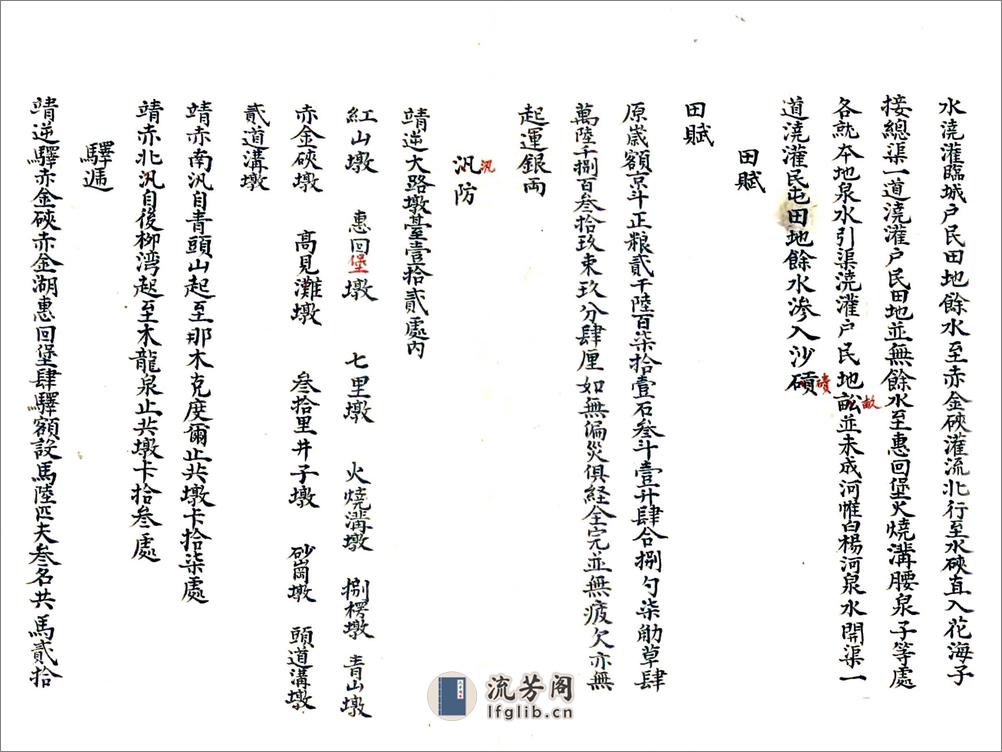 水澆灌臨城户民田地餘水至赤金硤灌流北行至水硤直入花海子
接總渠一道澆灌户民田地並無餘水至惠回堡火燒溝腰泉子等處
各就夲地泉水引渠澆灌户民地畆並未成河惟白楊河泉水開渠一
敝
道澆灌民屯田地餘水渗入沙磧
磧
田賦
田賦
原嵗額京斗正粮貳千陸百柒拾壹石叁斗壹升肆合捌勺柒觔草肆
萬陸千捌百叁拾玖束玖分肆厘如無偏災俱経全完並無疲欠亦無
起運銀両
汛防
汛
靖逆大路墩臺壹拾貳處内
紅山墩 惠回堡墩 七里墩 火燒溝墩 捌楞墩 青山墩
赤金硤墩 髙見灘墩 叁拾里井子墩 砂崗墩 頭道溝墩
貳道溝墩
靖赤南汛自青頭山起至那木克度爾止共墩卡拾柒處
靖赤北汛自後柳湾起至木龍泉止共墩卡拾叁處
驛遞
靖逆驛赤金硤赤金湖惠回堡肆驛額設馬陸匹夫叁名共馬貳拾
流芳阁
lfglib.cn